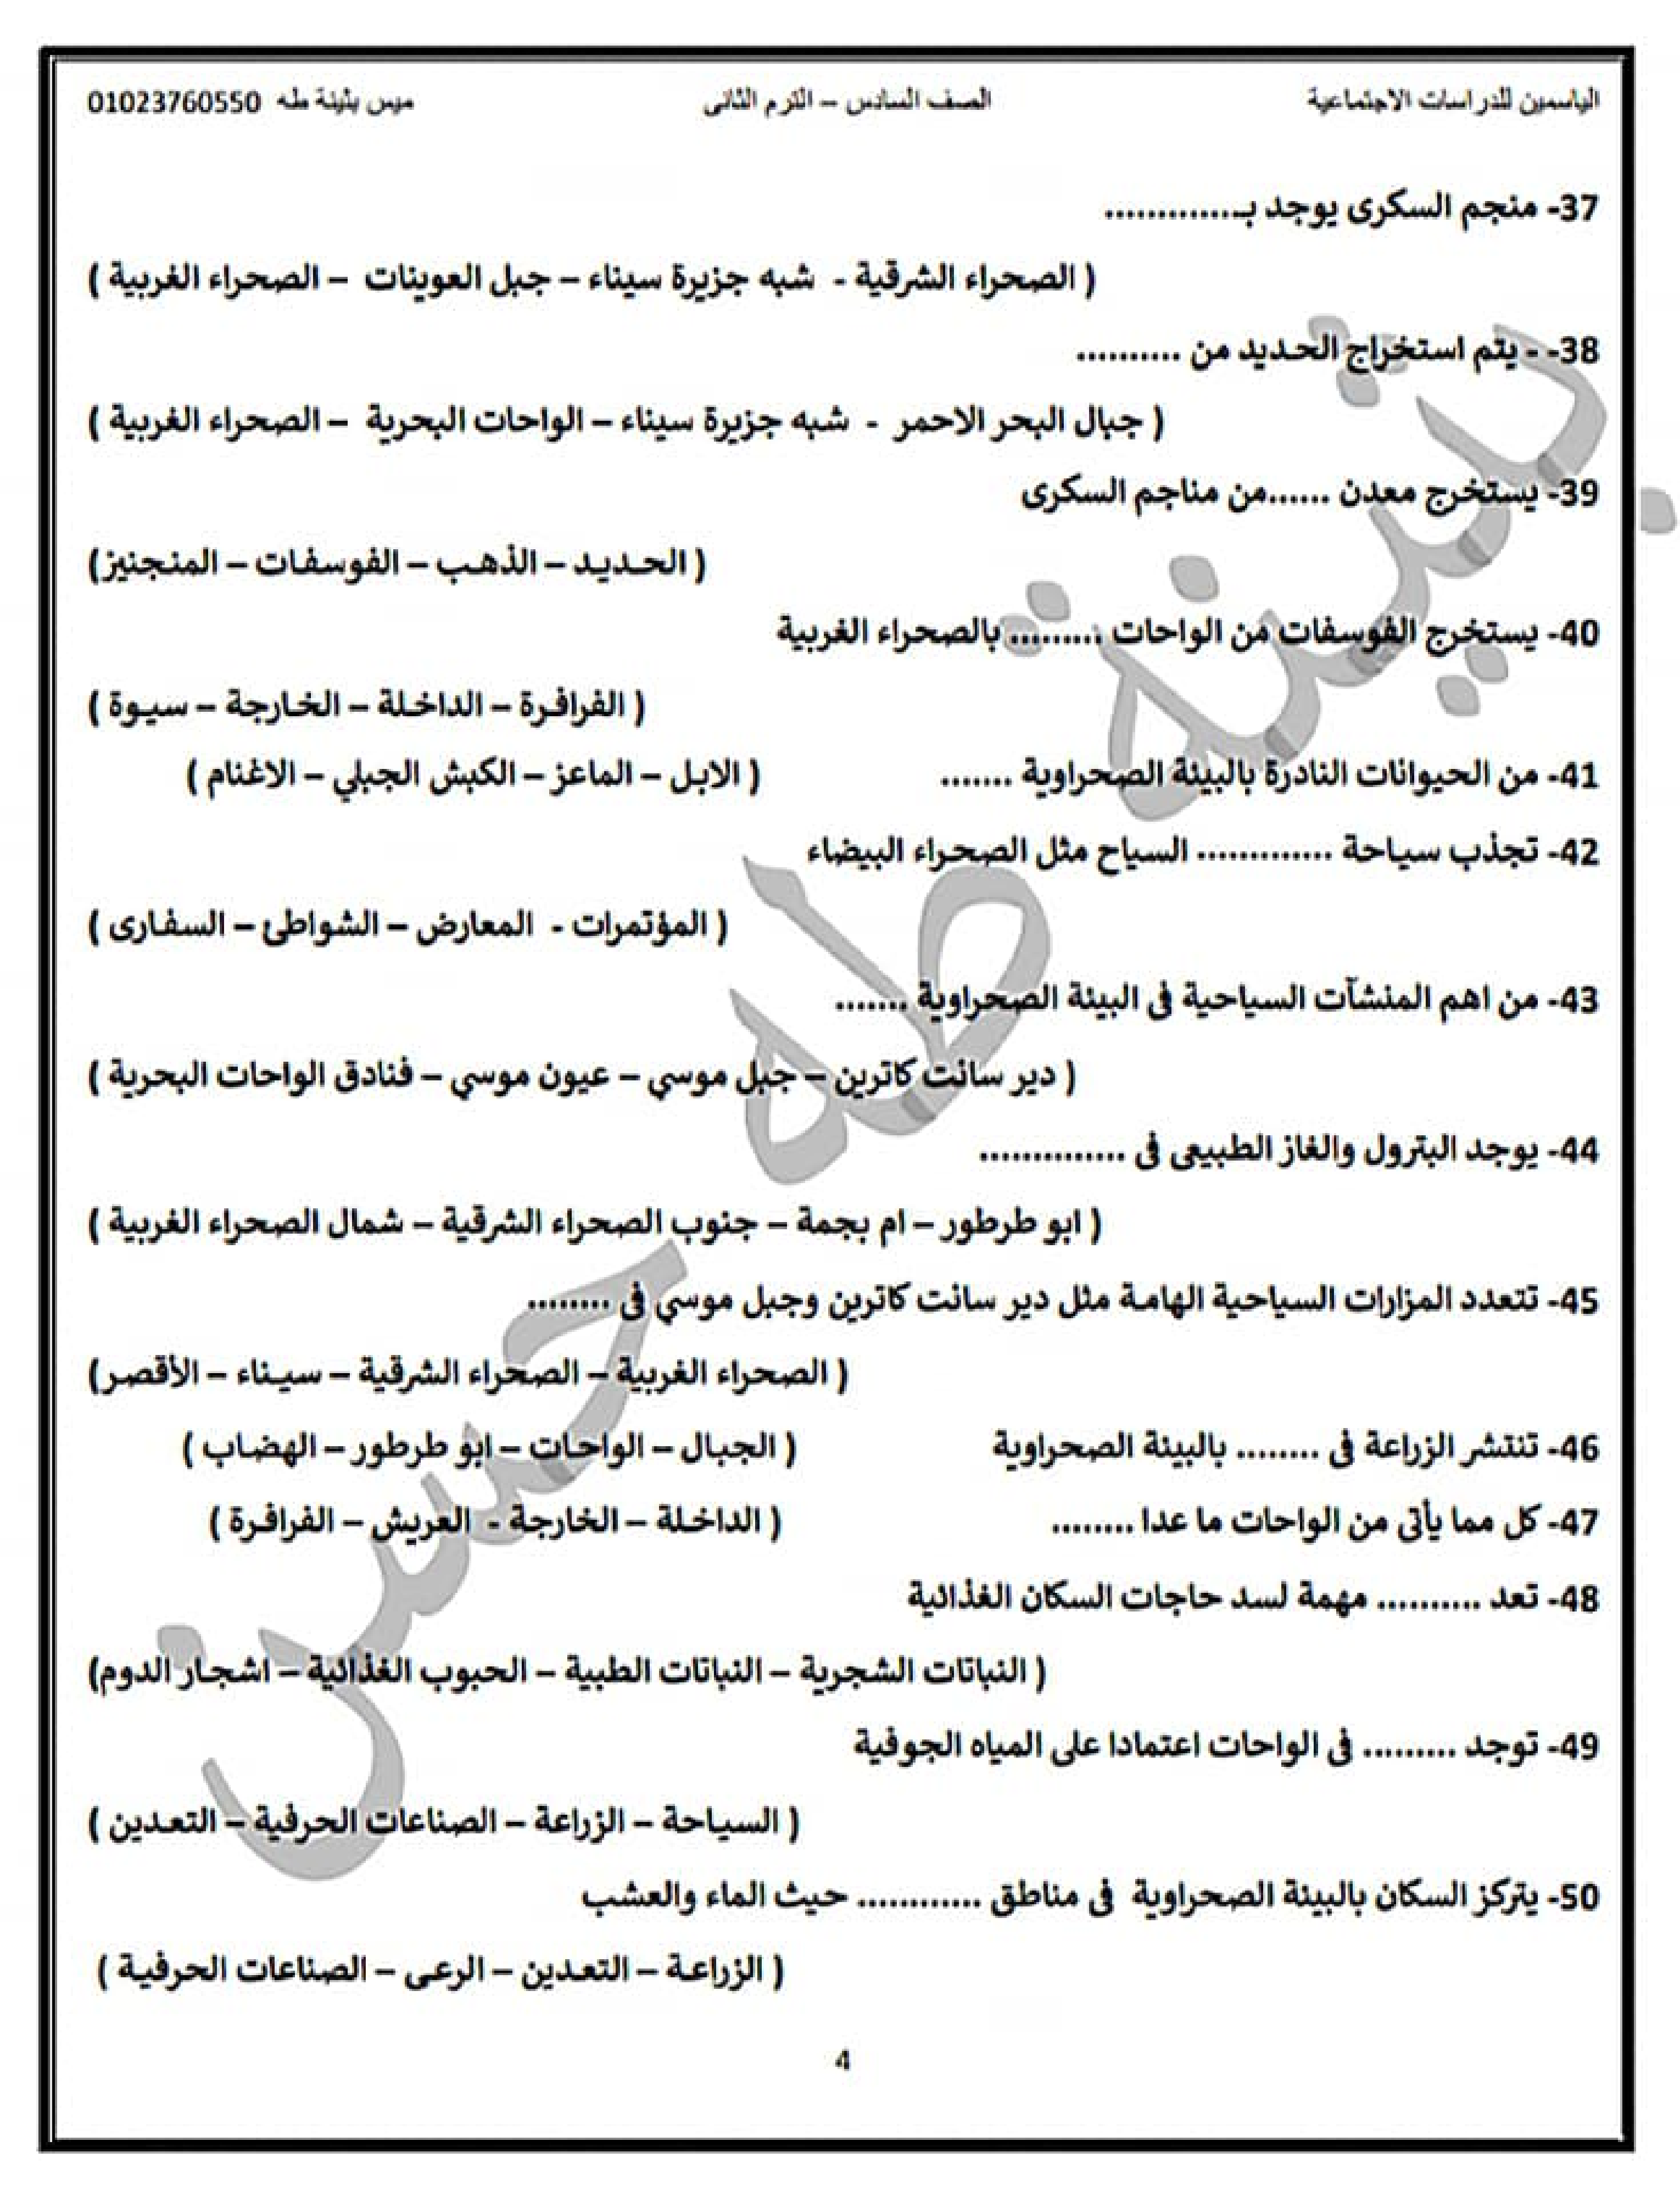 الياسمين للدراسات الاجتماعية الصف السادس – الترم الثانى ميس بثينة طه 01023760550
37- منجم السكرى يوجد بـ.............
( الصحراء الشرقية - شبه جزيرة سيناء – جبل العوينات – الصحراء الغربية )
38- - يتم استخراج الحديد من ..........
( جبال البحر الاحمر - شبه جزيرة سيناء – الواحات البحرية – الصحراء الغربية )
39- يستخرج معدن ......من مناجم السكرى
( الحديد – الذهب – الفوسفات – المنجنيز)
40- يستخرج الفوسفات من الواحات ......... بالصحراء الغربية
( الفرافرة – الداخلة – الخارجة – سيوة )
41- من الحيوانات النادرة بالبيئة الصحراوية ....... ( الابل – الماعز – الكبش الجبلي – الاغنام )
42- تجذب سياحة ............. السياح مثل الصحراء البيضاء
( المؤتمرات - المعارض – الشواطئ – السفارى )
43- من اهم المنشآت السياحية فى البيئة الصحراوية .......
( دير سانت كاترين – جبل موسي – عيون موسي – فنادق الواحات البحرية )
44- يوجد البترول والغاز الطبيعى فى ..............
( ابو طرطور – ام بجمة – جنوب الصحراء الشرقية – شمال الصحراء الغربية )
45- تتعدد المزارات السياحية الهامة مثل دير سانت كاترين وجبل موسي فى ........
( الصحراء الغربية – الصحراء الشرقية – سيناء – الأقصر)
46- تنتشر الزراعة فى ........ بالبيئة الصحراوية ( الجبال – الواحات – ابو طرطور – الهضاب )
47- كل مما يأتى من الواحات ما عدا ........ ( الداخلة – الخارجة - العريش – الفرافرة )
48- تعد .......... مهمة لسد حاجات السكان الغذائية
( النباتات الشجرية – النباتات الطبية – الحبوب الغذائية – اشجار الدوم)
49- توجد ......... فى الواحات اعتمادا على المياه الجوفية
( السياحة – الزراعة – الصناعات الحرفية – التعدين )
50- يتركز السكان بالبيئة الصحراوية فى مناطق ............ حيث الماء والعشب
( الزراعة – التعدين – الرعى – الصناعات الحرفية )
4
بثينة طه حسن